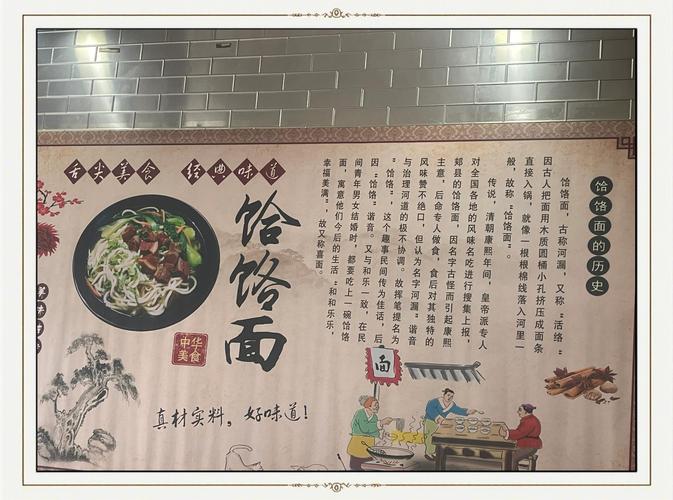 舌尖美食 经典味道
饸饹面
中华美食
真材实料，好味道！
饸饹面的历史
饸饹面，古称河漏，又称“活络”
因古人把面用木质圆桶小孔挤压成面条
直接入锅，就像一根根棉线落入河里一
般，故称“饸饹面”。
传说，清朝康熙年间，皇帝派专人
对全国各地的风味名吃进行搜集上报，
郏县的饸饹面，因名字古怪而引起康熙
主意，后命专人做食，食后对其独特的
风味赞不绝口，但认为名字河漏”谐音
与治理河道的极不协调。故挥笔提名为
“饸饹”，这个趣事民间传为佳话，后
因“饸饹”谐音。又与和乐一致，在民
间青年男女结婚时，都要吃上一碗饸饹
面，寓意他们今后的生活“和和乐乐，
幸福美满”，故又称喜面。
面